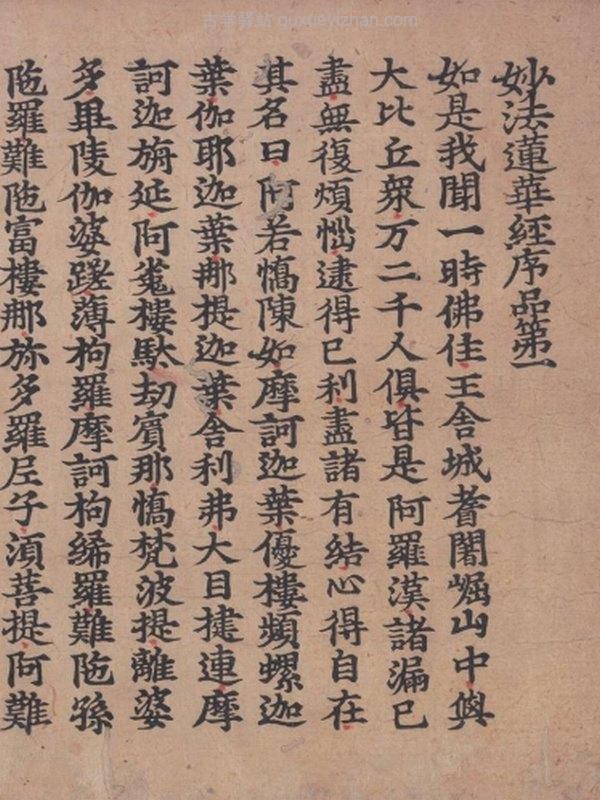 古学驿站 guxueyizhan.com
妙法蓮華經序品第一
如是我聞一時佛住王舍城耆闍崛山中與
大比丘衆万二千人俱皆是阿羅漢諸漏已
盡無復煩惱逮得已利盡諸有結心得自在
其名曰阿若憍陳如摩訶迦葉優樓頻螺迦
葉伽耶迦葉那提迦葉舍利弗大目揵連摩
訶迦旃延阿㝹樓馱劫賓那憍梵波提離婆
多畢陵伽婆蹉薄拘羅摩訶拘絺羅難陁孫
陁羅難陁富樓那弥多羅尼子湏菩提阿難